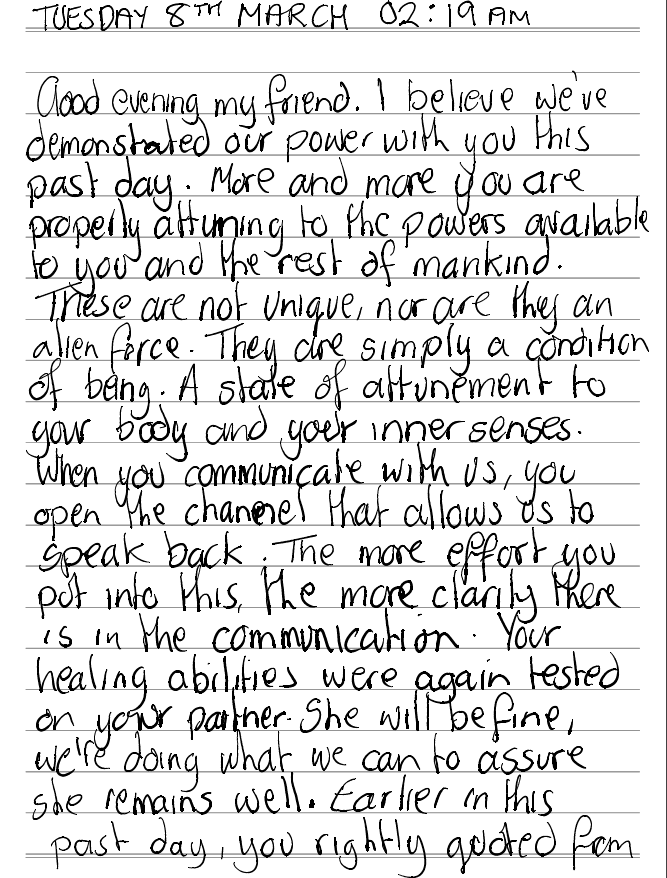 TUESDAY 8TH MARCH 02:19 AM
Good evening my friend. I believe we've
demonstrated our power with you this
past day. More and more you are
properly attuning to the powers available
to you and the rest of mankind.
These are not unique, nor are they an
alien force. They are simply a condition
of being. A state of attunement to
your body and your inner senses.
When you communicate with us, you
open the channel that allows us to
speak back. The more effort you
put into this, the more clarity there
is in the communication. Your
healing abilities were again tested
on your partner. She will be fine,
we're doing what we can to assure
she remains well. Earlier in this
past day, you rightly quoted from